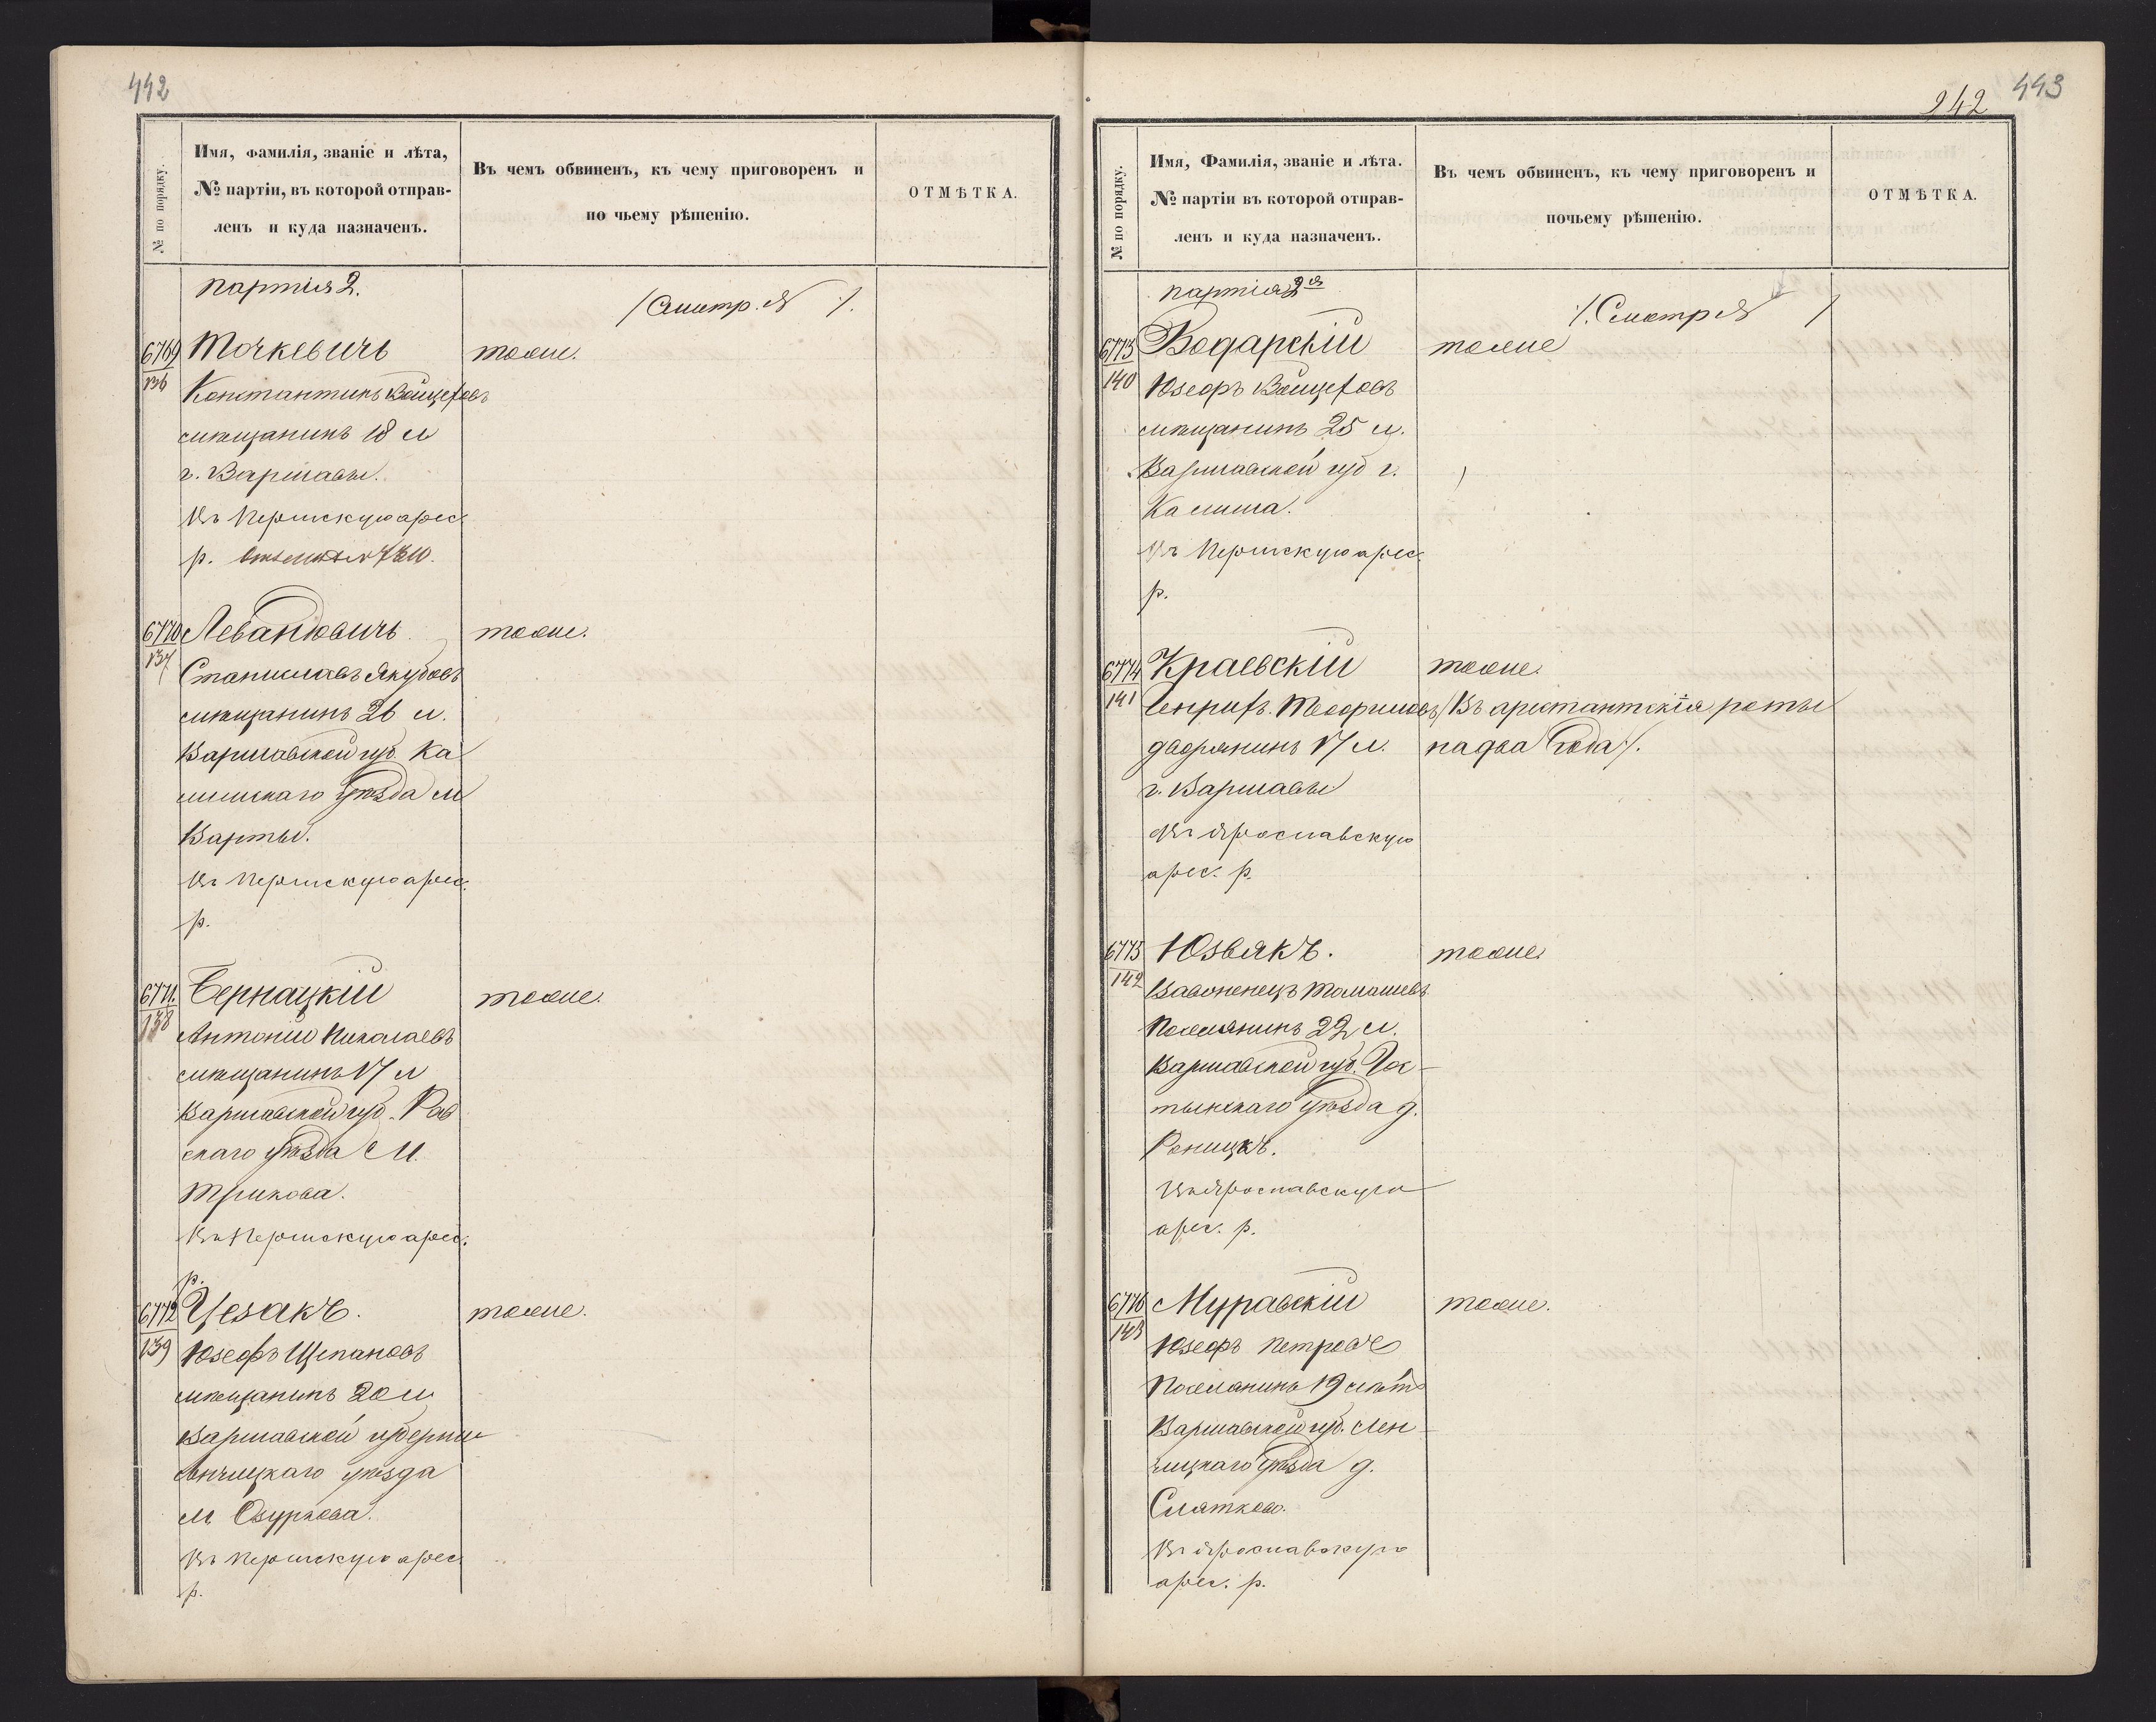 442
№ по порядку.
Имя, фамилія, званіе и лѣта,
№ партіи, въ которой отправ-
ленъ и куда назначенъ.
Въ чемъ обвиненъ, къ чему приговоренъ и
по чьему рѣшенію.
ОТМѢТКА.
партія 2.
/Смотр. №   /.
6769
136
Мочкевичъ
тоже.
Константинъ Войцеховъ
мѣщанинъ 18 л
г. Варшавы.
Въ Пермскую арес.
р.
6770
137
Левандовичъ
тоже.
Станиславъ Якубовъ
мѣщанинъ 26 л.
Варшавской губ. Ка
лишскаго уѣзда м
Варты.
Въ Пермскую арес.
р.
6771.
138
Бернацкій
тоже.
Антоній Николаевъ
мѣщанинъ 17 л
Варшавской губ. Рав
скаго уѣзда М.
Въ Пермскую арес.
р.
6772
139
Цезакъ.
тоже.
Юзефъ Щепановъ
мѣщанинъ 20 л
Варшавской губерніи
Ленчицкаго уѣзда
м Озуркова.
Въ Пермскую арес
р.
443
242
№ по порядку.
Имя, Фамилія, званіе и лѣта.
№ партіи въ которой отправ-
ленъ и куда назначенъ.
Въ чемъ обвиненъ, къ чему приговоренъ и
почьему рѣшенію.
ОТМѢТКА.
партія 2я
/. Смотр №   /
6773
140
Водарскій
тоже
Юзефъ Войцеховъ
мѣщанинъ 25 л.
Варшавской губ г.
Калиша.
Въ Пермскую арес.
р.
6774
141
Краевскій
тоже.
Генрихъ Теофиловъ /Въ арестантскія роты
дворянинъ 17 л. на два года/.
г. Варшавы
Въ Ярославскую
арес. р.
6775
142
Юзвякъ.
тоже.
Томашевъ
Поселянинъ 22 л.
Варшавской губ. Гос-
тынскаго уѣзда д.
Въ Ярославскую
арес. р.
6776
143
Муравскій
тоже.
Юзефъ Петровъ
Поселянинъ 19 лѣтъ
Варшавской губ. Лен-
чицкаго уѣзда д.
Слатково.
Въ Ярославскую
арес. р.